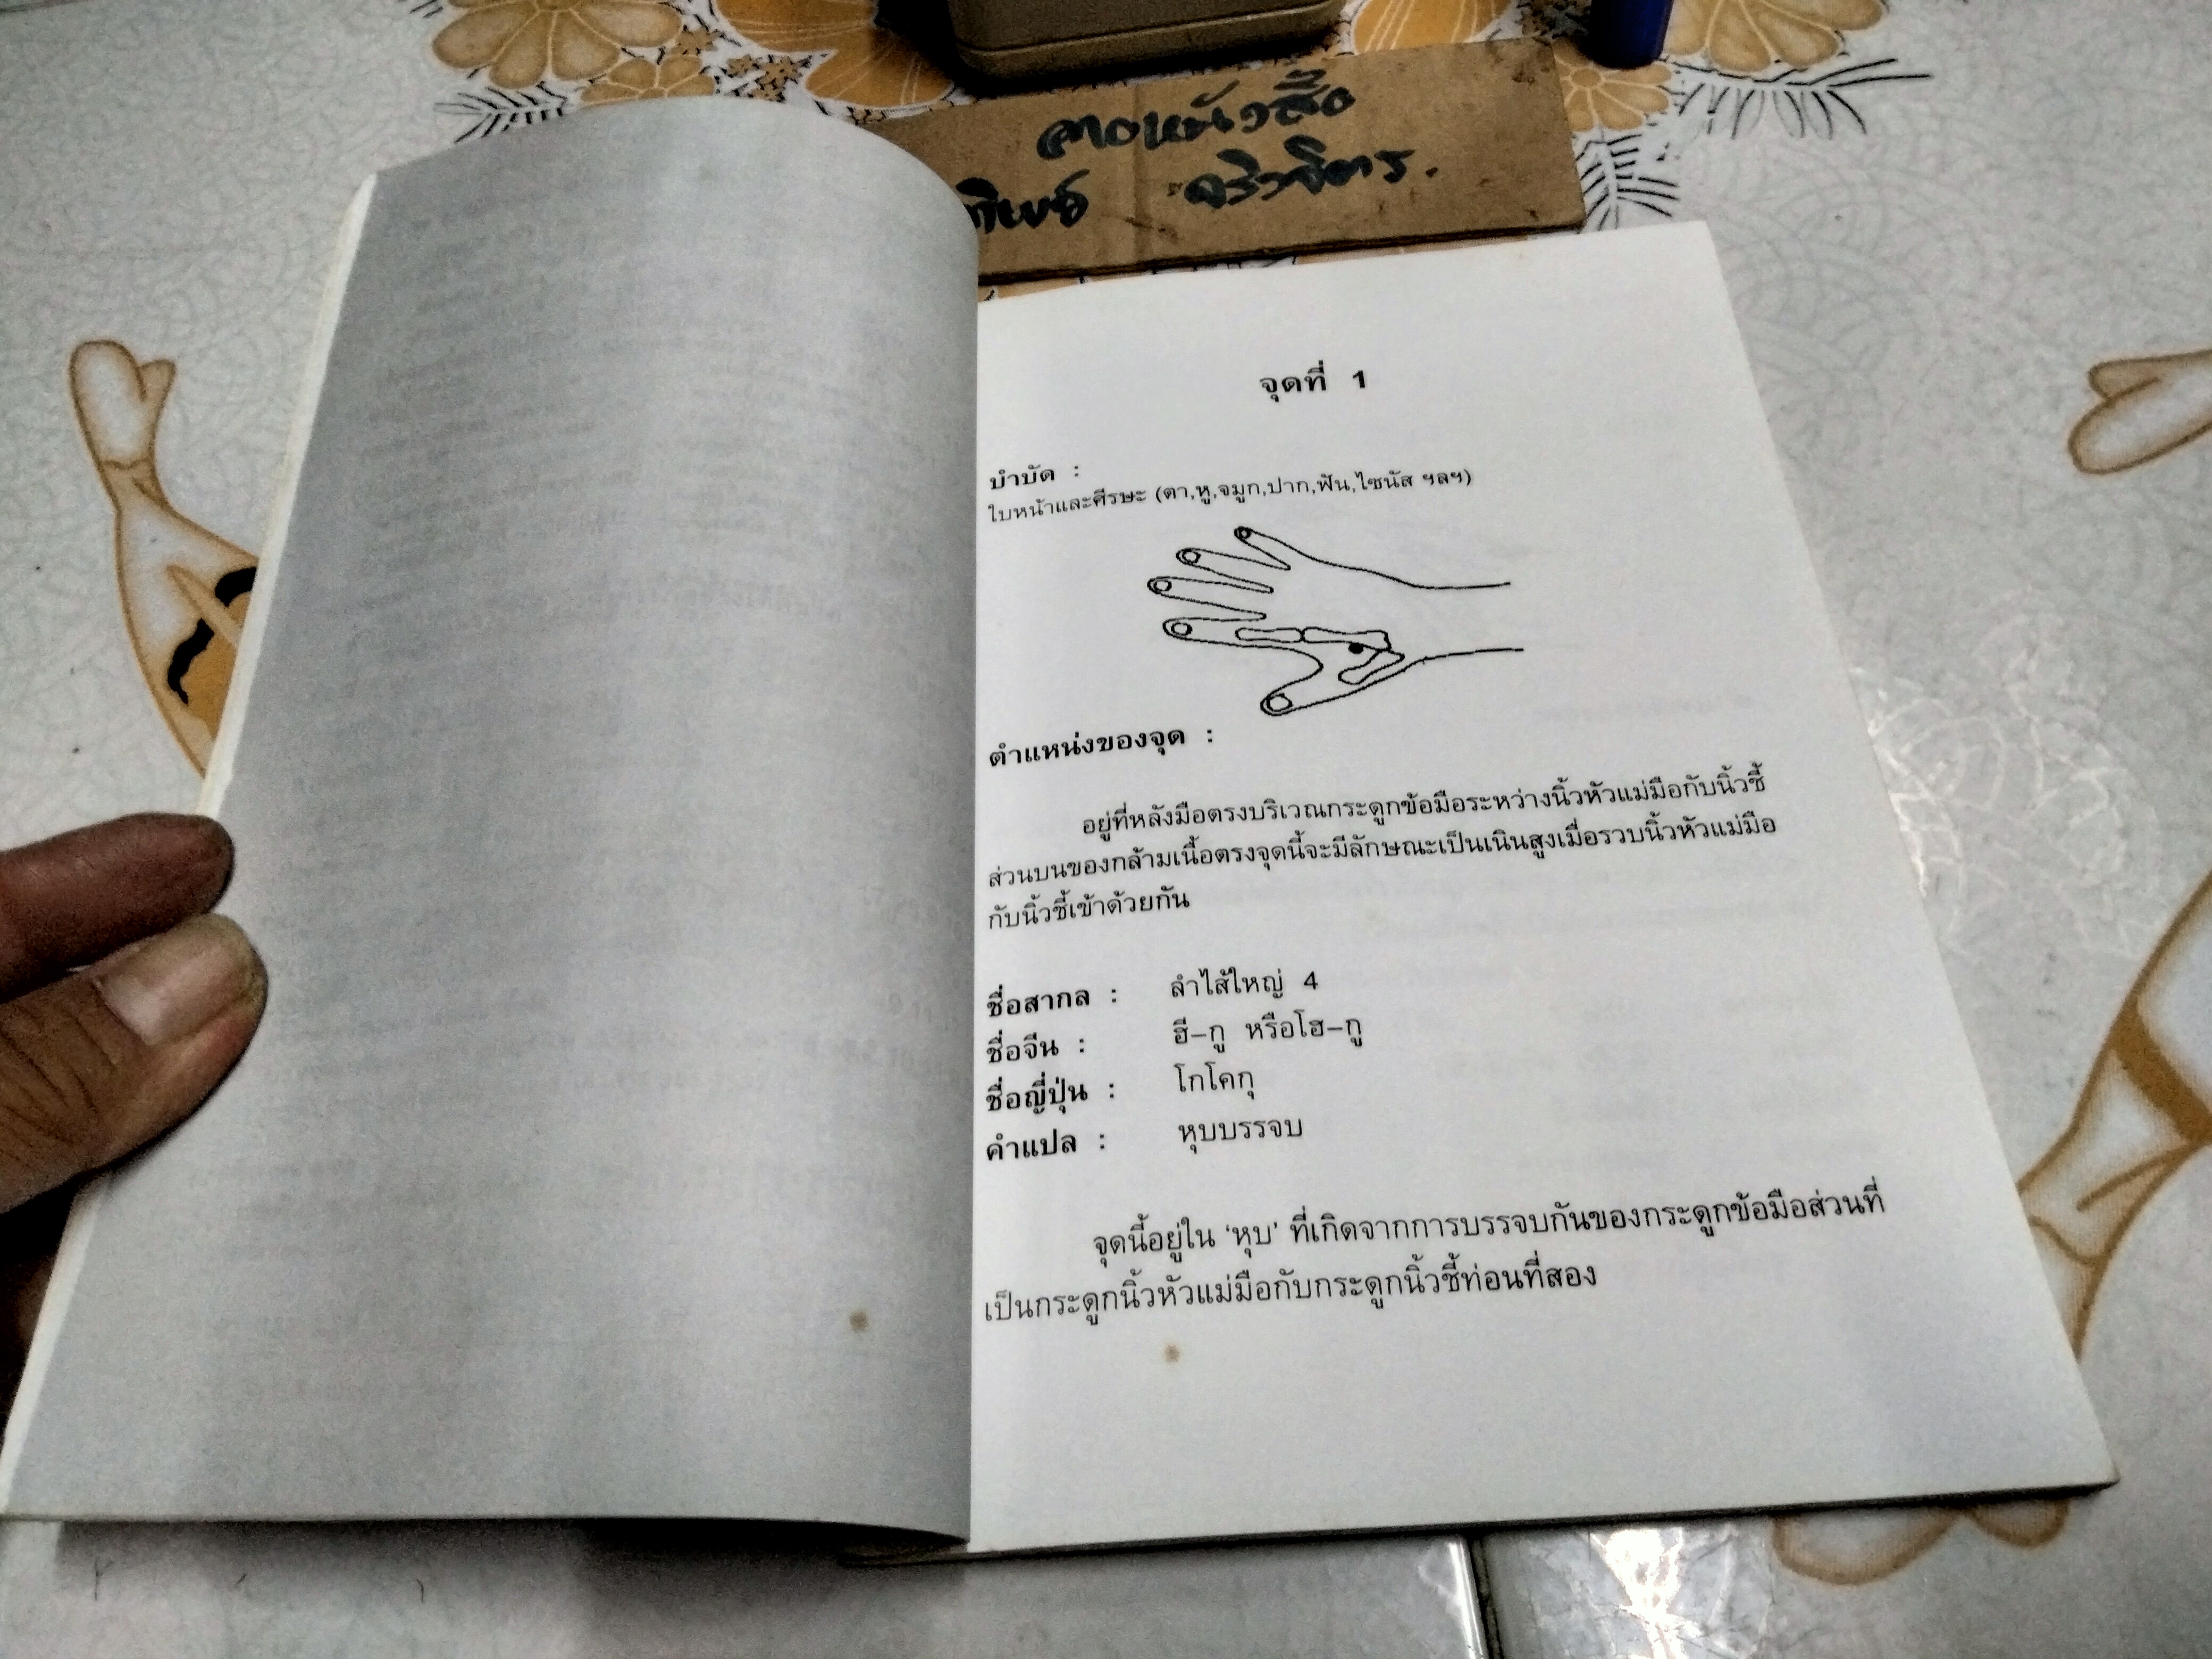 จุดที่ 1
บำบัด :
ใบหน้าและศีรษะ (ตา,หู,จมูก,ปาก,ฟัน,ไซนัส ฯลฯ)
ตำแหน่งของจุด :
อยู่ที่หลังมือตรงบริเวณกระดูกข้อมือระหว่างนิ้วหัวแม่มือกับนิ้วชี้
ส่วนบนของกล้ามเนื้อตรงจุดนี้จะมีลักษณะเป็นเนินสูงเมื่อรวบนิ้วหัวแม่มือ
กับนิ้วชี้เข้าด้วยกัน
ชื่อสากล : ลำไส้ใหญ่ 4
ชื่อจีน : ฮี-กู หรือโฮ-กู
ชื่อญี่ปุ่น : โกโคกุ
คำแปล : หุบบรรจบ
จุดนี้อยู่ใน 'หุบ' ที่เกิดจากการบรรจบกันของกระดูกข้อมือส่วนที่
เป็นกระดูกนิ้วหัวแม่มือกับกระดูกนิ้วชี้ท่อนที่สอง